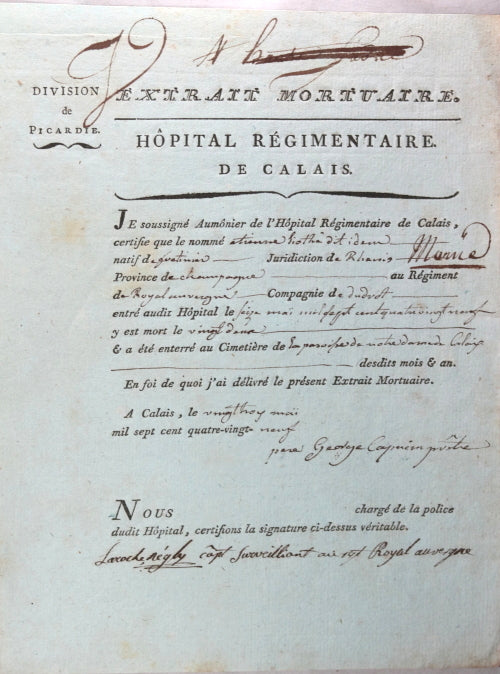 DIVISION
de
PICARDIE.
EXTRAIT MORTUAIRE.
HÔPITAL RÉGIMENTAIRE.
DE CALAIS.
JE soussigné Aumônier de l'Hôpital Régimentaire de Calais,
certifie que le nommé etienne dit idem
natif de Juridiction de Rheims Marne
Province de champagne au Régiment
de Royal auvergne Compagnie de
entré audit Hôpital le seize mai mil sept cent quatre vingt neuf
y est mort le vingt deux
& a été enterré au Cimetière de la paroisse de notre dame de Calais
desdits mois & an.
En foi de quoi j'ai délivré le présent Extrait Mortuaire.
A Calais, le vingt troy mai
mil sept cent quatre-vingt neuf
pere George Capucin
NOUS chargé de la police
dudit Hôpital, certifions la signature ci-dessus véritable.
Laroche Négly capt Surveilliant au rgt Royal auvergne